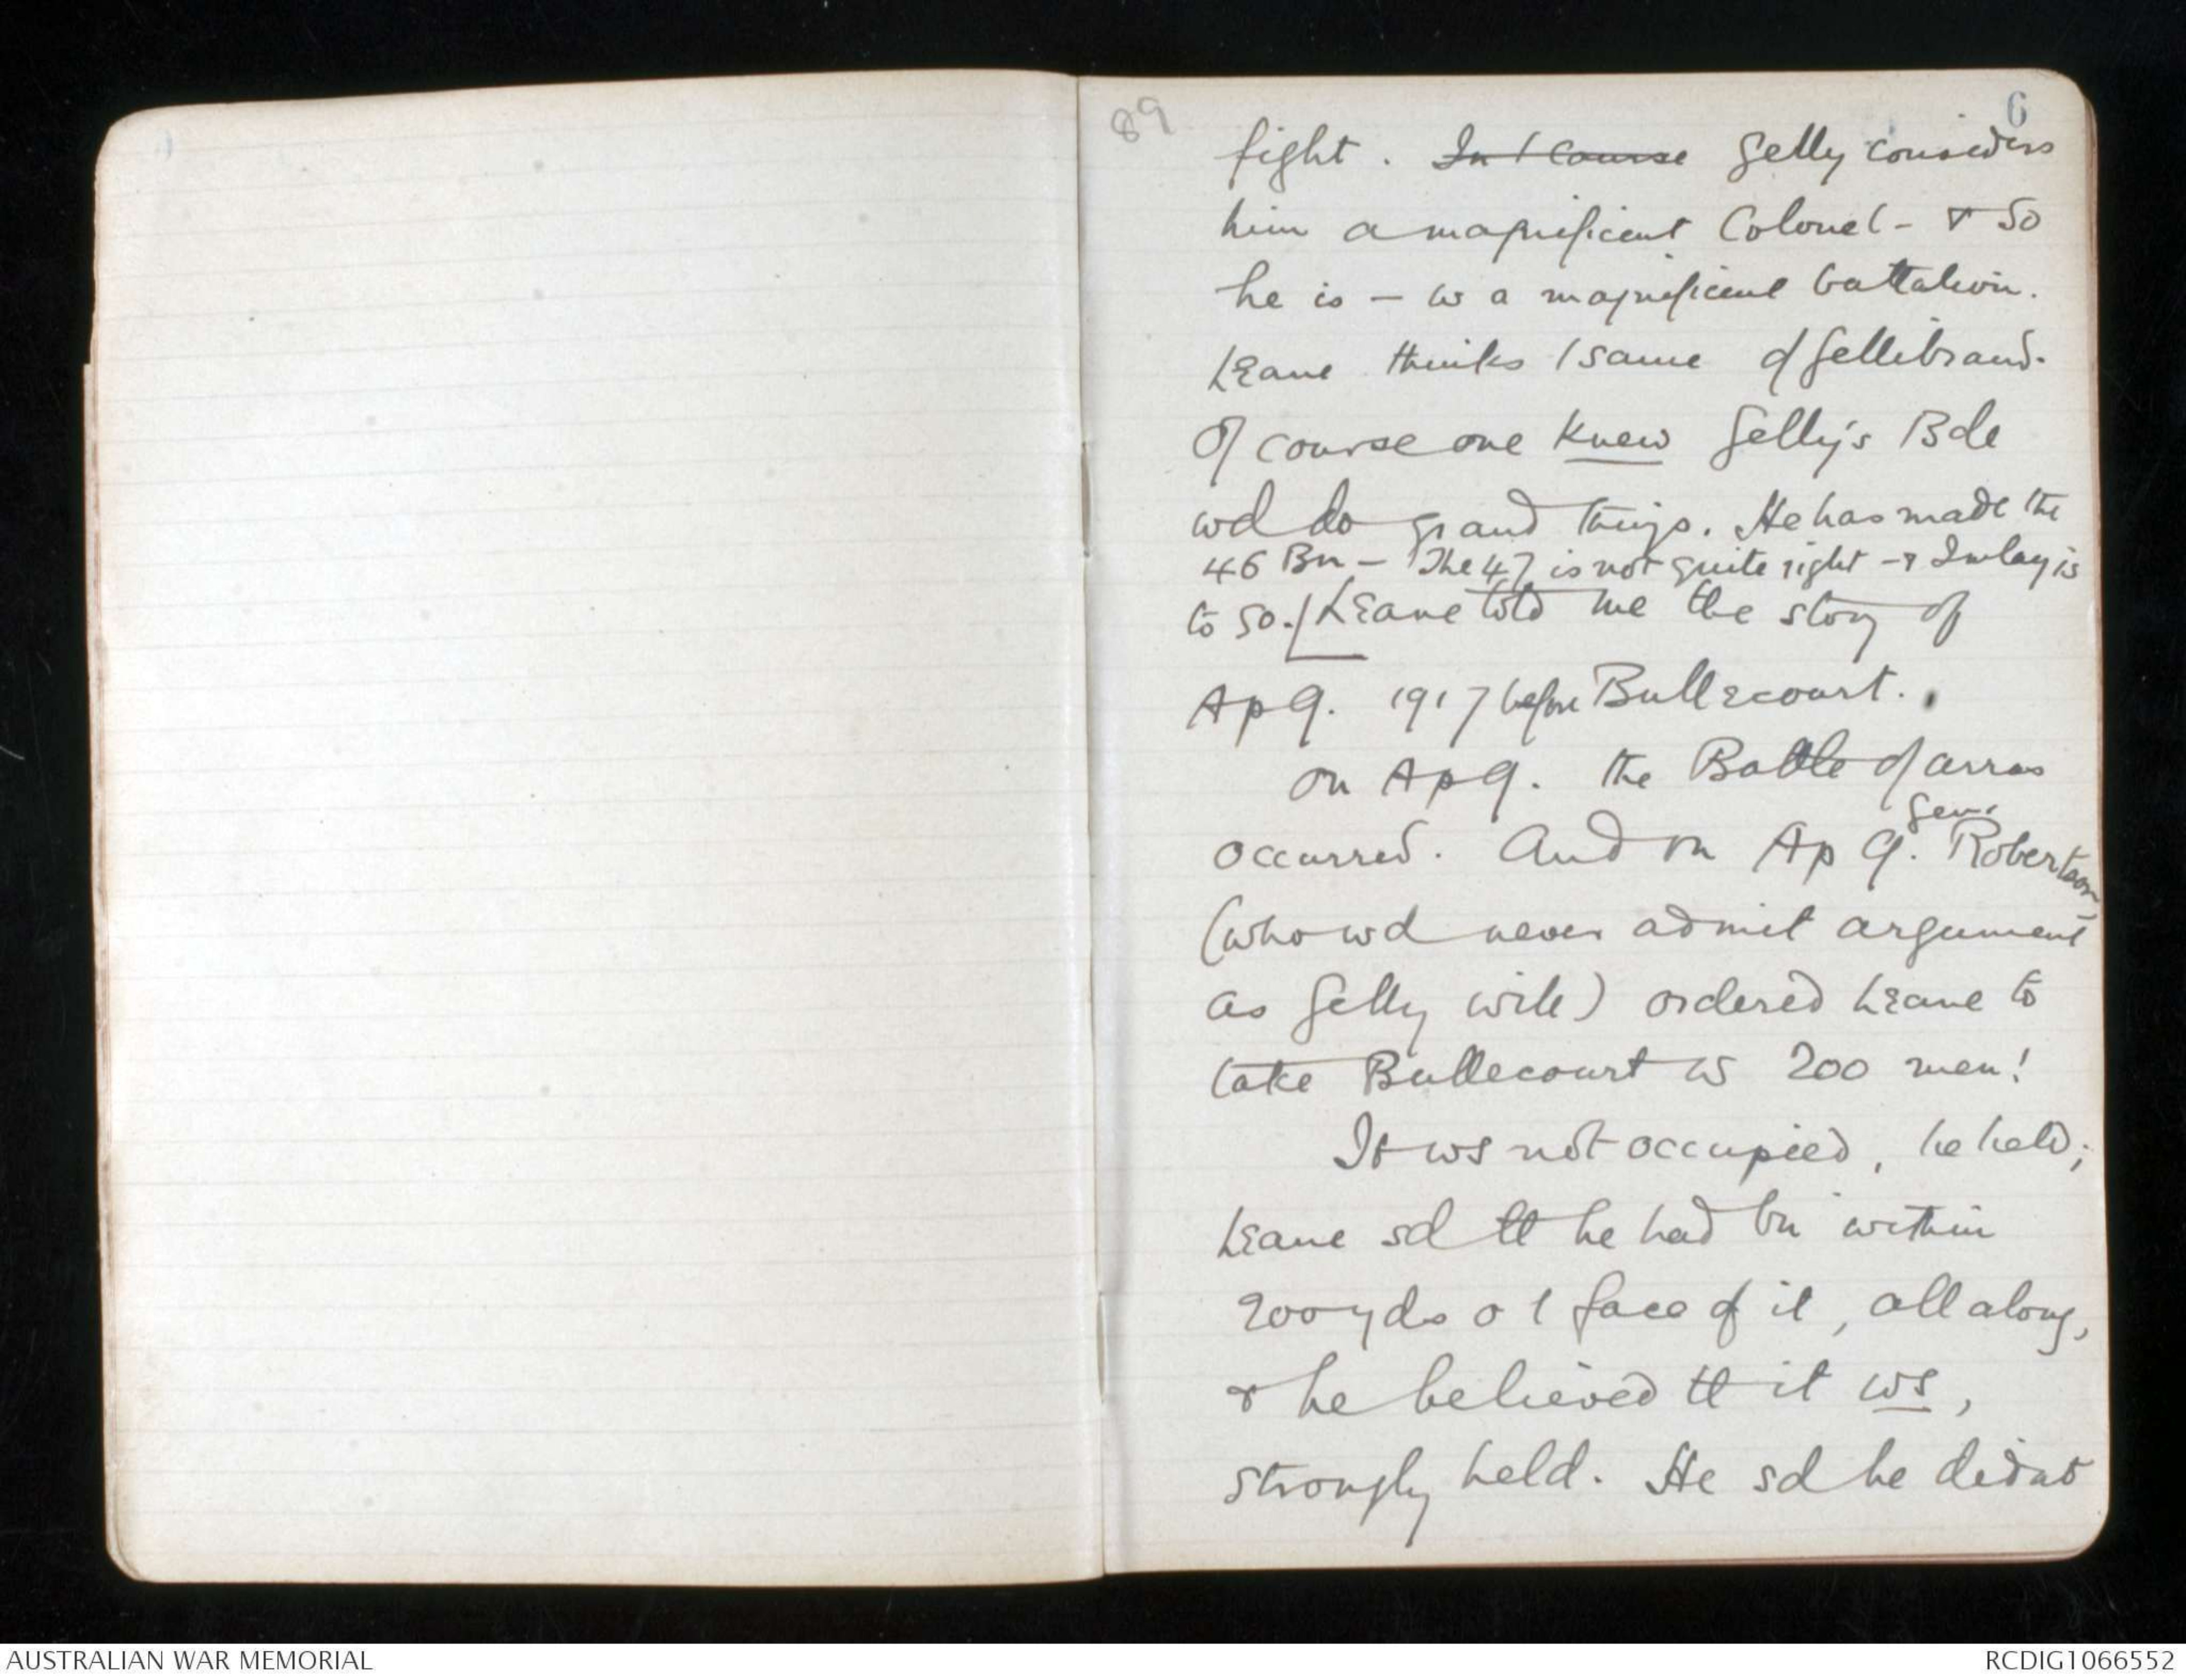 89
6
fight. In / course Gelly considers
him a magnificent Colonel - & so
he is — w a magnificent battalion.
Leane thinks / same of Gellibrand.
Of course one knew Gelly's Bde
wd do grand things. He has made the
46 Bn — The 47 is not quite right - & Imlay is
to go. / Leane told me the story of
Ap 9. 1917 before Bullecourt.
On Ap 9. the Battle of Arras
occurred. And on Ap 9. Genl Robertson
(who wd never admit argument
as Gelly will) ordered Leane to
take Bullecourt w 200 men!
It ws not occupied, he held;
Leane sd tt he had bn within
200 yds o / face of it, all along,
& he believed tt it ws,
strongly held. He sd he did not
AUSTRALIAN WAR MEMORIAL
RCDIG1066552